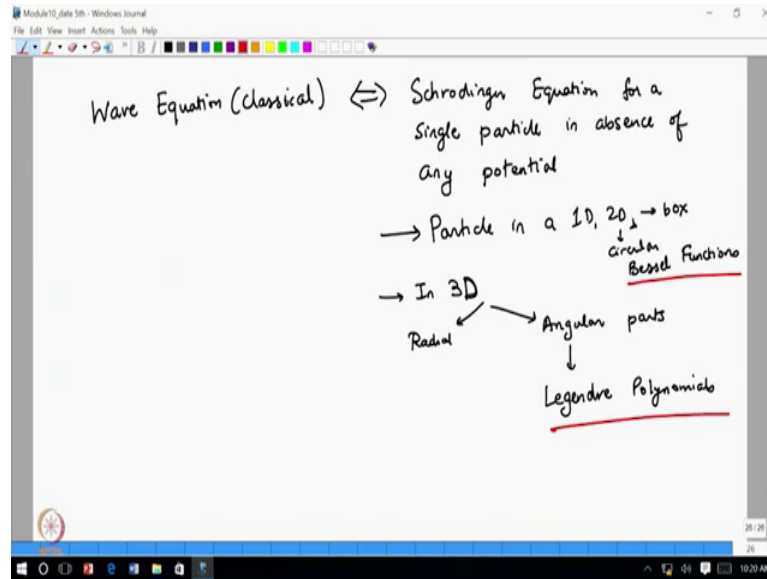 Module10_date 5th - Windows Journal
File Edit View Insert Actions Tools Help
Wave Equation (Classical) ⇔ Schrodinger Equation for a
single particle in absence of
any potential
→ Particle in a 1D, 2D, → box
↓
circular
Bessel Functions
→ In 3D
Radial
Angular parts
↓
Legendre Polynomials
26/26
26
10:20 AM